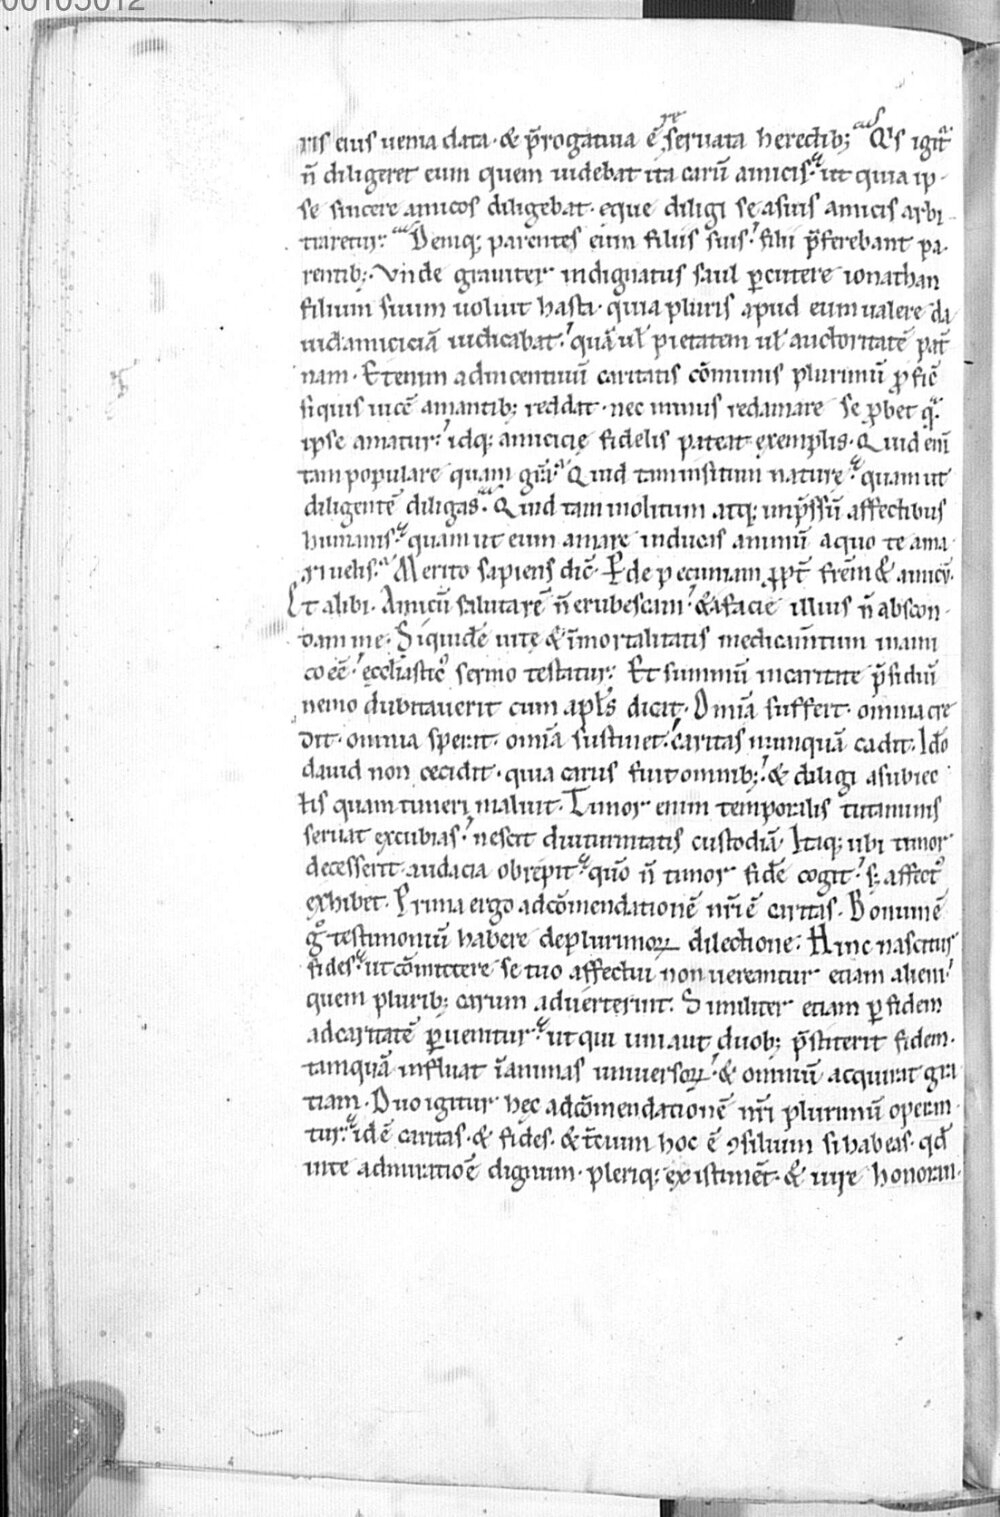 00105012
ris eius uenia data · & p̄rogatiua ē reseruata heredib; Q's igit᷑
n̄ diligeret eum quem uidebat ita carū amicis · ut quia ip-
se sincere amicos diligebat · eque diligi se asuis amicis arbi-
traretur · Deniq; parentes eum filiis suis · filii p̄ferebant pa-
rentib; · Vnde grauiter indignatus saul p̱cutere ionathan
filium suum uoluit hasta · quia pluris apud eum ualere da
uid amiciciā iudicabat · quā ul̄ pietatem ul̄ auctoritatē pat̄
nam · Etenim adincentiuū caritatis cōmunis plurimū ꝓfic̄
siquis uicē amantib; reddat · nec minus redamare se ꝓbet q̄
ipse amatur · idq; amicicię fidelis pateat exemplis · Quid eni᷑
tam populare quam gr̄a · Quid tam insitum naturę · quam ut
diligentē diligas · Quid tam inolitum atq; imp̄ssū affectibus
humanis · quam ut eum amare inducas animū aquo te ama-
ri uelis · Merito sapiens dic̄ · Pde pecuniam ꝓpt̄ fr̄em & amicū ·
Et alibi · Amicū salutarē n̄ erubescam · & afacie illius n̄ abscon-
dam me · Siquidē uitę & īmortalitatis medicam̄tum inami
co eē · ecclīasticꝰ sermo testatur · Et summū incaritate p̄sidiū
nemo dubitauerit cum apl̄s dicit · Omīa suffert · omnia cre
dit · omnia sperat · omīa sustinet · caritas nunquā cadit · Idō
dauid non cecidit · quia carus fuit omnib; · & diligi asubiec
tis quam timeri maluit · Timor enim temporalis tutaminis
seruat excubias · nescit diuturnitatis custodiā · Itaq; ubi timor
decesserit · audacia obrepit · quō n̄ timor fidē cogit · s; affectꝰ
exhibet · Prima ergo adcōmendationē nr̄i ē caritas · Bonum ē
g° testimoniū habere deplurimoꝝ dilectione · Hinc nascitur
fides · ut cōmittere se tuo affectui non uereantur etiam alieni ·
quem plurib; carum aduerterint · Similiter etiam p̱ fidem
adcaritatē p̱uenitur · ut qui uni aut duob; p̄stiterit fidem ·
tamquā influat īanimas uniuersoꝝ · & omniū acquirat gra
tiam · Duo igitur hęc adcōmendationē nr̄i plurimū operan-
tur · idē caritas · & fides · & t̄cium hoc ē ꝯsilium si habeas · qd̄
inte admiratiōe dignum · pleriq; existimēt · & iure honoran-